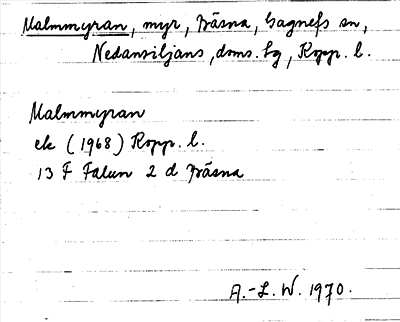 Malmmyran, myr, Bäsna, Gagnefs sn,
Nedansiljans, doms. tg, Kopp. l.
Malmmyran
ek (1968) Kopp. l.
13 F Falun 2 d Bäsna
A.-L. W. 1970.